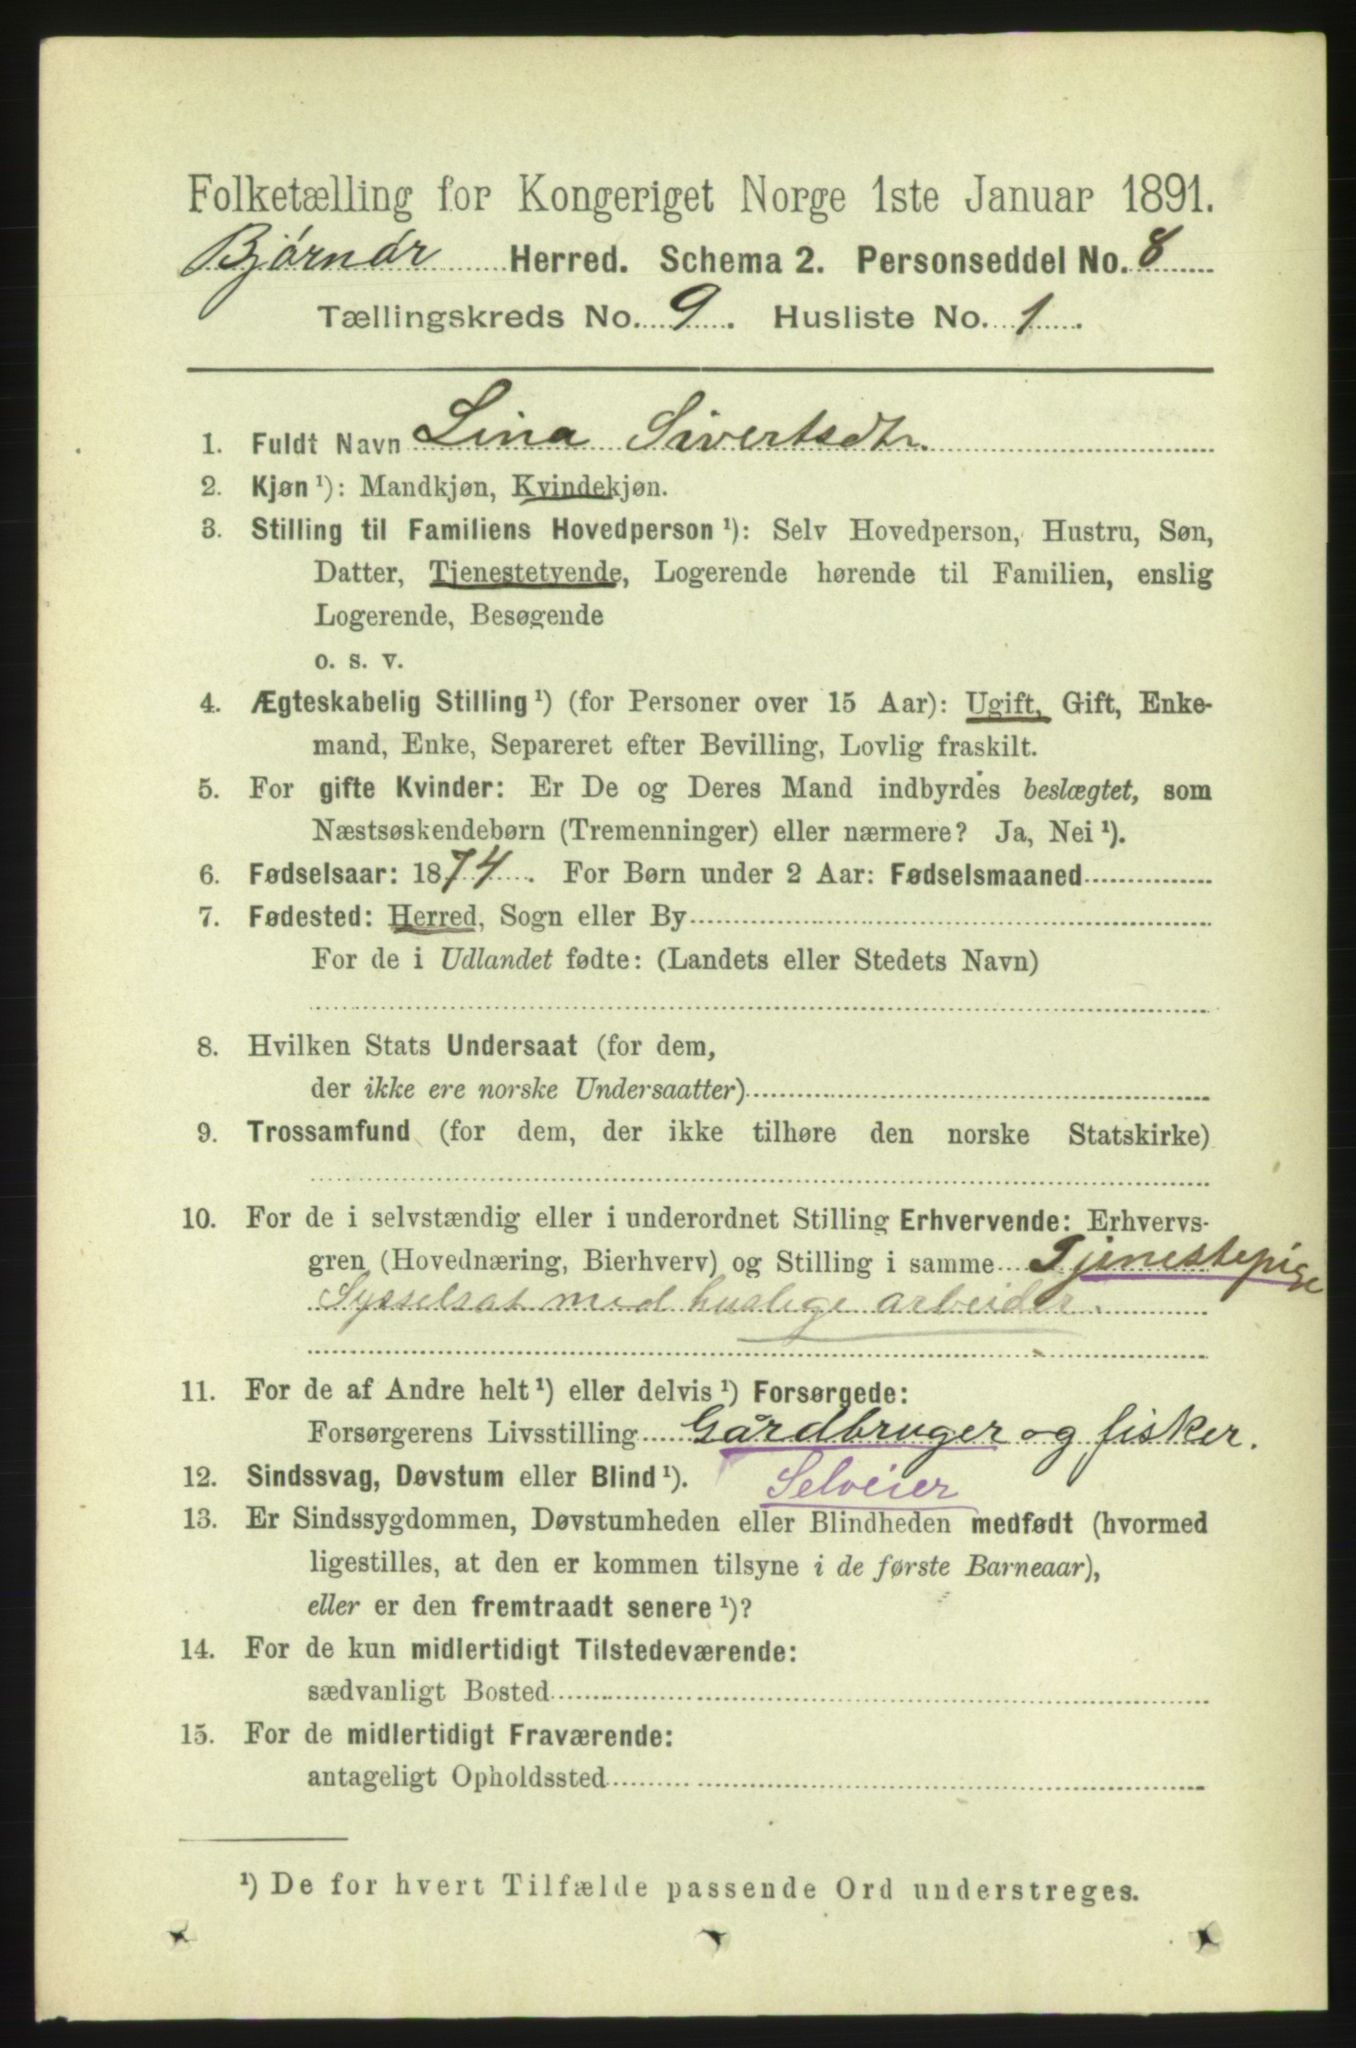 Folketælling for Kongeriget Norge 1ste Januar 1891.
Bjørnør Herred. Schema 2. Personseddel No. 8
Tællingskreds No. 9. Husliste No. 1.
1. Fuldt Navn Lina Sivertsdtr.
2. Kjøn ¹): Mandkjøn, Kvindekjøn.
3. Stilling til Familiens Hovedperson ¹): Selv Hovedperson, Hustru, Søn,
Datter, Tjenestetyende, Logerende hørende til Familien, enslig
Logerende, Besøgende
o. s. v.
4. Ægteskabelig Stilling ¹) (for Personer over 15 Aar): Ugift, Gift, Enke-
mand, Enke, Separeret efter Bevilling, Lovlig fraskilt.
5. For gifte Kvinder: Er De og Deres Mand indbyrdes beslægtet, som
Næstsøskendebørn (Tremenninger) eller nærmere? Ja, Nei ¹).
6. Fødselsaar: 1874. For Børn under 2 Aar: Fødselsmaaned
7. Fødested: Herred, Sogn eller By
For de i Udlandet fødte: (Landets eller Stedets Navn)
8. Hvilken Stats Undersaat (for dem,
der ikke ere norske Undersaatter)
9. Trossamfund (for dem, der ikke tilhøre den norske Statskirke)
10. For de i selvstændig eller i underordnet Stilling Erhvervende: Erhvervs-
gren (Hovednæring, Bierhverv) og Stilling i samme Tjenestepige
Sysselsat med huslige arbeider.
11. For de af Andre helt ¹) eller delvis ¹) Forsørgede:
Forsørgerens Livsstilling Gårdbruger og fisker.
12. Sindssvag, Døvstum eller Blind ¹). Selveier
13. Er Sindssygdommen, Døvstumheden eller Blindheden medfødt (hvormed
ligestilles, at den er kommen tilsyne i de første Barneaar),
eller er den fremtraadt senere ¹)?
14. For de kun midlertidigt Tilstedeværende:
sædvanligt Bosted
15. For de midlertidigt Fraværende:
antageligt Opholdssted
¹) De for hvert Tilfælde passende Ord understreges.